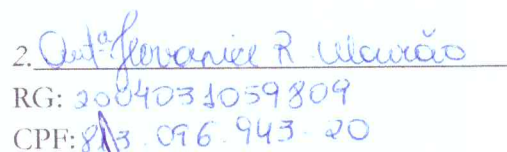 2. Antª Geovanice R. Mourão
RG: 2004031059809
CPF: 813.096.943-20